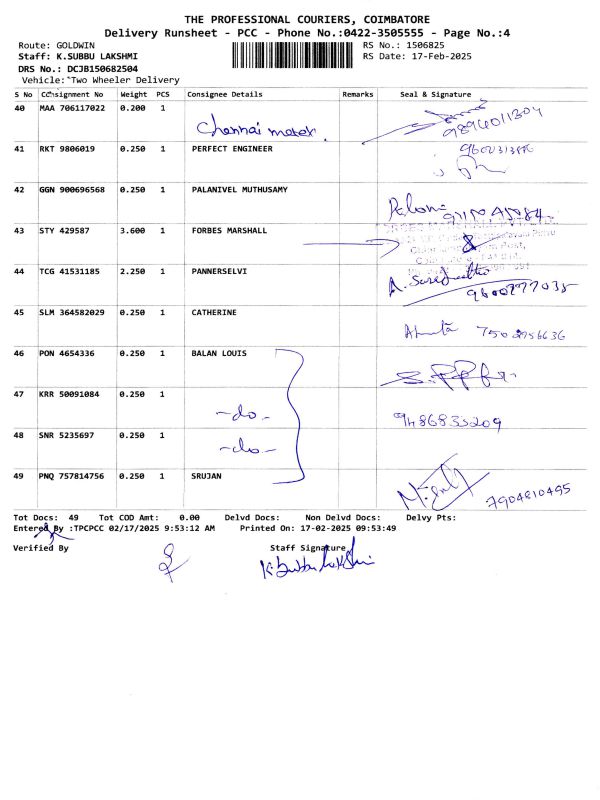 THE PROFESSIONAL COURIERS, COIMBATORE
Delivery Runsheet - PCC - Phone No.:0422-3505555 - Page No.:4
Route: GOLDWIN RS No.: 1506825
Staff: K.SUBBU LAKSHMI RS Date: 17-Feb-2025
DRS No.: DCJB150682504
Vehicle: Two Wheeler Delivery
S No Consignment No Weight PCS Consignee Details Remarks Seal & Signature
40 MAA 706117022 0.200 1 Chennai motor. 9894011304
41 RKT 9806019 0.250 1 PERFECT ENGINEER
42 GGN 900696568 0.250 1 PALANIVEL MUTHUSAMY
43 STY 429587 3.600 1 FORBES MARSHALL
44 TCG 41531185 2.250 1 PANNERSELVI 9600777035
45 SLM 364582029 0.250 1 CATHERINE
46 PON 4654336 0.250 1 BALAN LOUIS
47 KRR 50091084 0.250 1 -do- 9486835209
48 SNR 5235697 0.250 1 -do-
49 PNQ 757814756 0.250 1 SRUJAN 7904810495
Tot Docs: 49 Tot COD Amt: 0.00 Delvd Docs: Non Delvd Docs: Delvy Pts:
Entered By :TPCPCC 02/17/2025 9:53:12 AM Printed On: 17-02-2025 09:53:49
Verified By Staff Signature
K. Subbu lakshmi